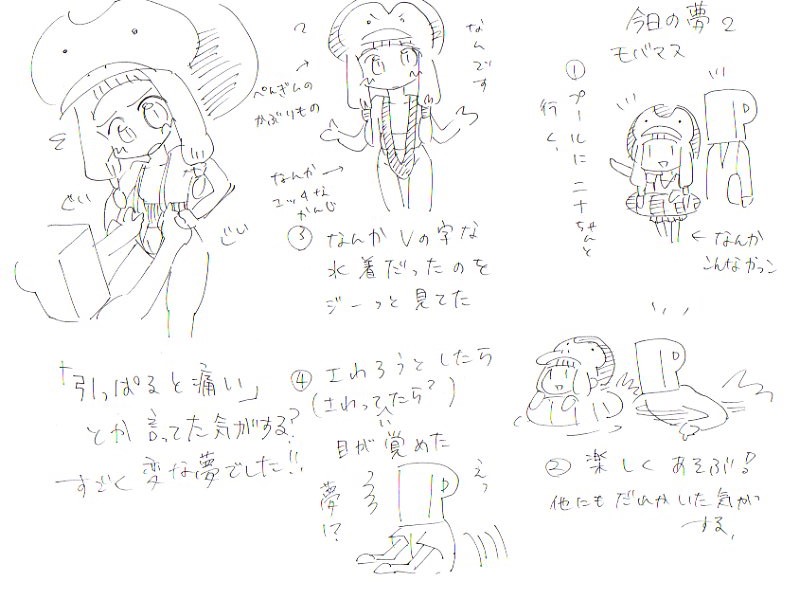 今日の夢2
モバマス
①プールにニナちゃんと
行く、
←なんか
こんなかっこ
②楽しくあそぶ!
他にもだれかいた気が
する、
なんです
?
ぺんぎんの
かぶりもの
なんか→
エッチな
かんじ
③なんかVの字な
水着だったのを
ジーっと見てた
④さわろうとしたら
(さわってたら?)
目が覚めた
えっ
夢!?
ぐい
ぐい
「引っぱると痛い」
とか言ってた気がする?
すごく変な夢でした!!
P
P
P